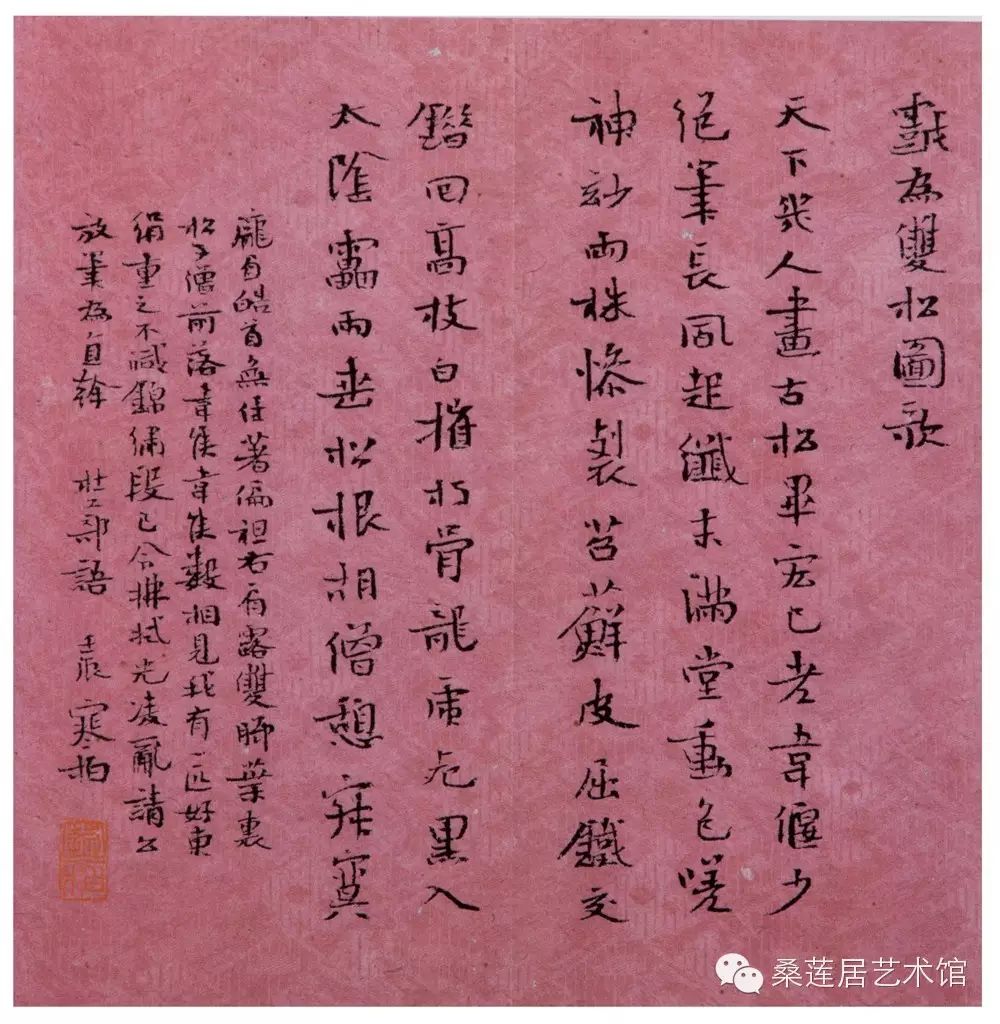 戲為雙松圖歌
天下幾人畫古松畢宏已老韋偃少
絕筆長風起纖末滿堂動色嗟
神妙兩株慘裂苔蘚皮屈鐵交
錯回高枝白摧朽骨龍虎死黑入
太陰雷雨垂松根胡僧憩寂寞
龐眉皓首無住著偏袒右肩露雙腳葉裏
松子僧前落韋侯韋侯數相見我有一匹好東
絹重之不減錦繡段已令拂拭光凌亂請公
放筆為直幹 杜工部語 壬辰 寒柏
桑莲居艺术馆